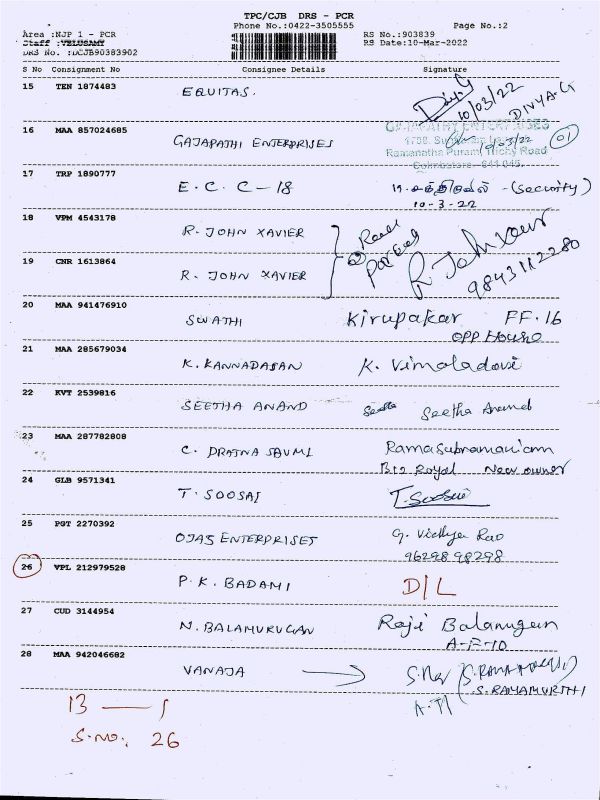 TPC/CJB DRS - PCR
Phone No.:0422-3505555
Page No.:2
Area :NJP 1 - PCR
RS No.:903839
Staff :VELUSAMY
RS Date:10-Mar-2022
DRS No. :DCJB90383902
S No Consignment No Consignee Details Signature
15 TEN 1874483 EQUITAS. 10/03/22 DIVYA.G
16 MAA 857024685 GAJAPATHI ENTERPRISES
GAJAPATHY ENTERPRISES
Ramanatha Puram, Trichy Road
Coimbatore - 641 045.
10/03/22 01
17 TRP 1890777 E.C.C-18 (Security)
10-3-22
18 VPM 4543178 R. JOHN XAVIER
19 CNR 1613864 R. JOHN XAVIER
R John Xavier
9843112280
20 MAA 941476910 SWATHI Kirupakar FF.16
OPP House
21 MAA 285679034 K. KANNADASAN K. Vimaladevi
22 KVT 2539816 SEETHA ANAND Seetha Seetha Anand
23 MAA 287782808 C. Ramasubramaniam
B12 Royal New owner
24 GLB 9571341 T. SOOSAI T. Soosai
25 PGT 2270392 OJAS ENTERPRISES G. Vidhya Rao
9629898298
26 VPL 212979528 P.K. BADAMI D/L
27 CUD 3144954 N. BALAMURUGAN Raji Balamurugan
A-F-10
28 MAA 942046682 VANAJA
S. RAMAMURTHI
13 — 1
S.NO: 26